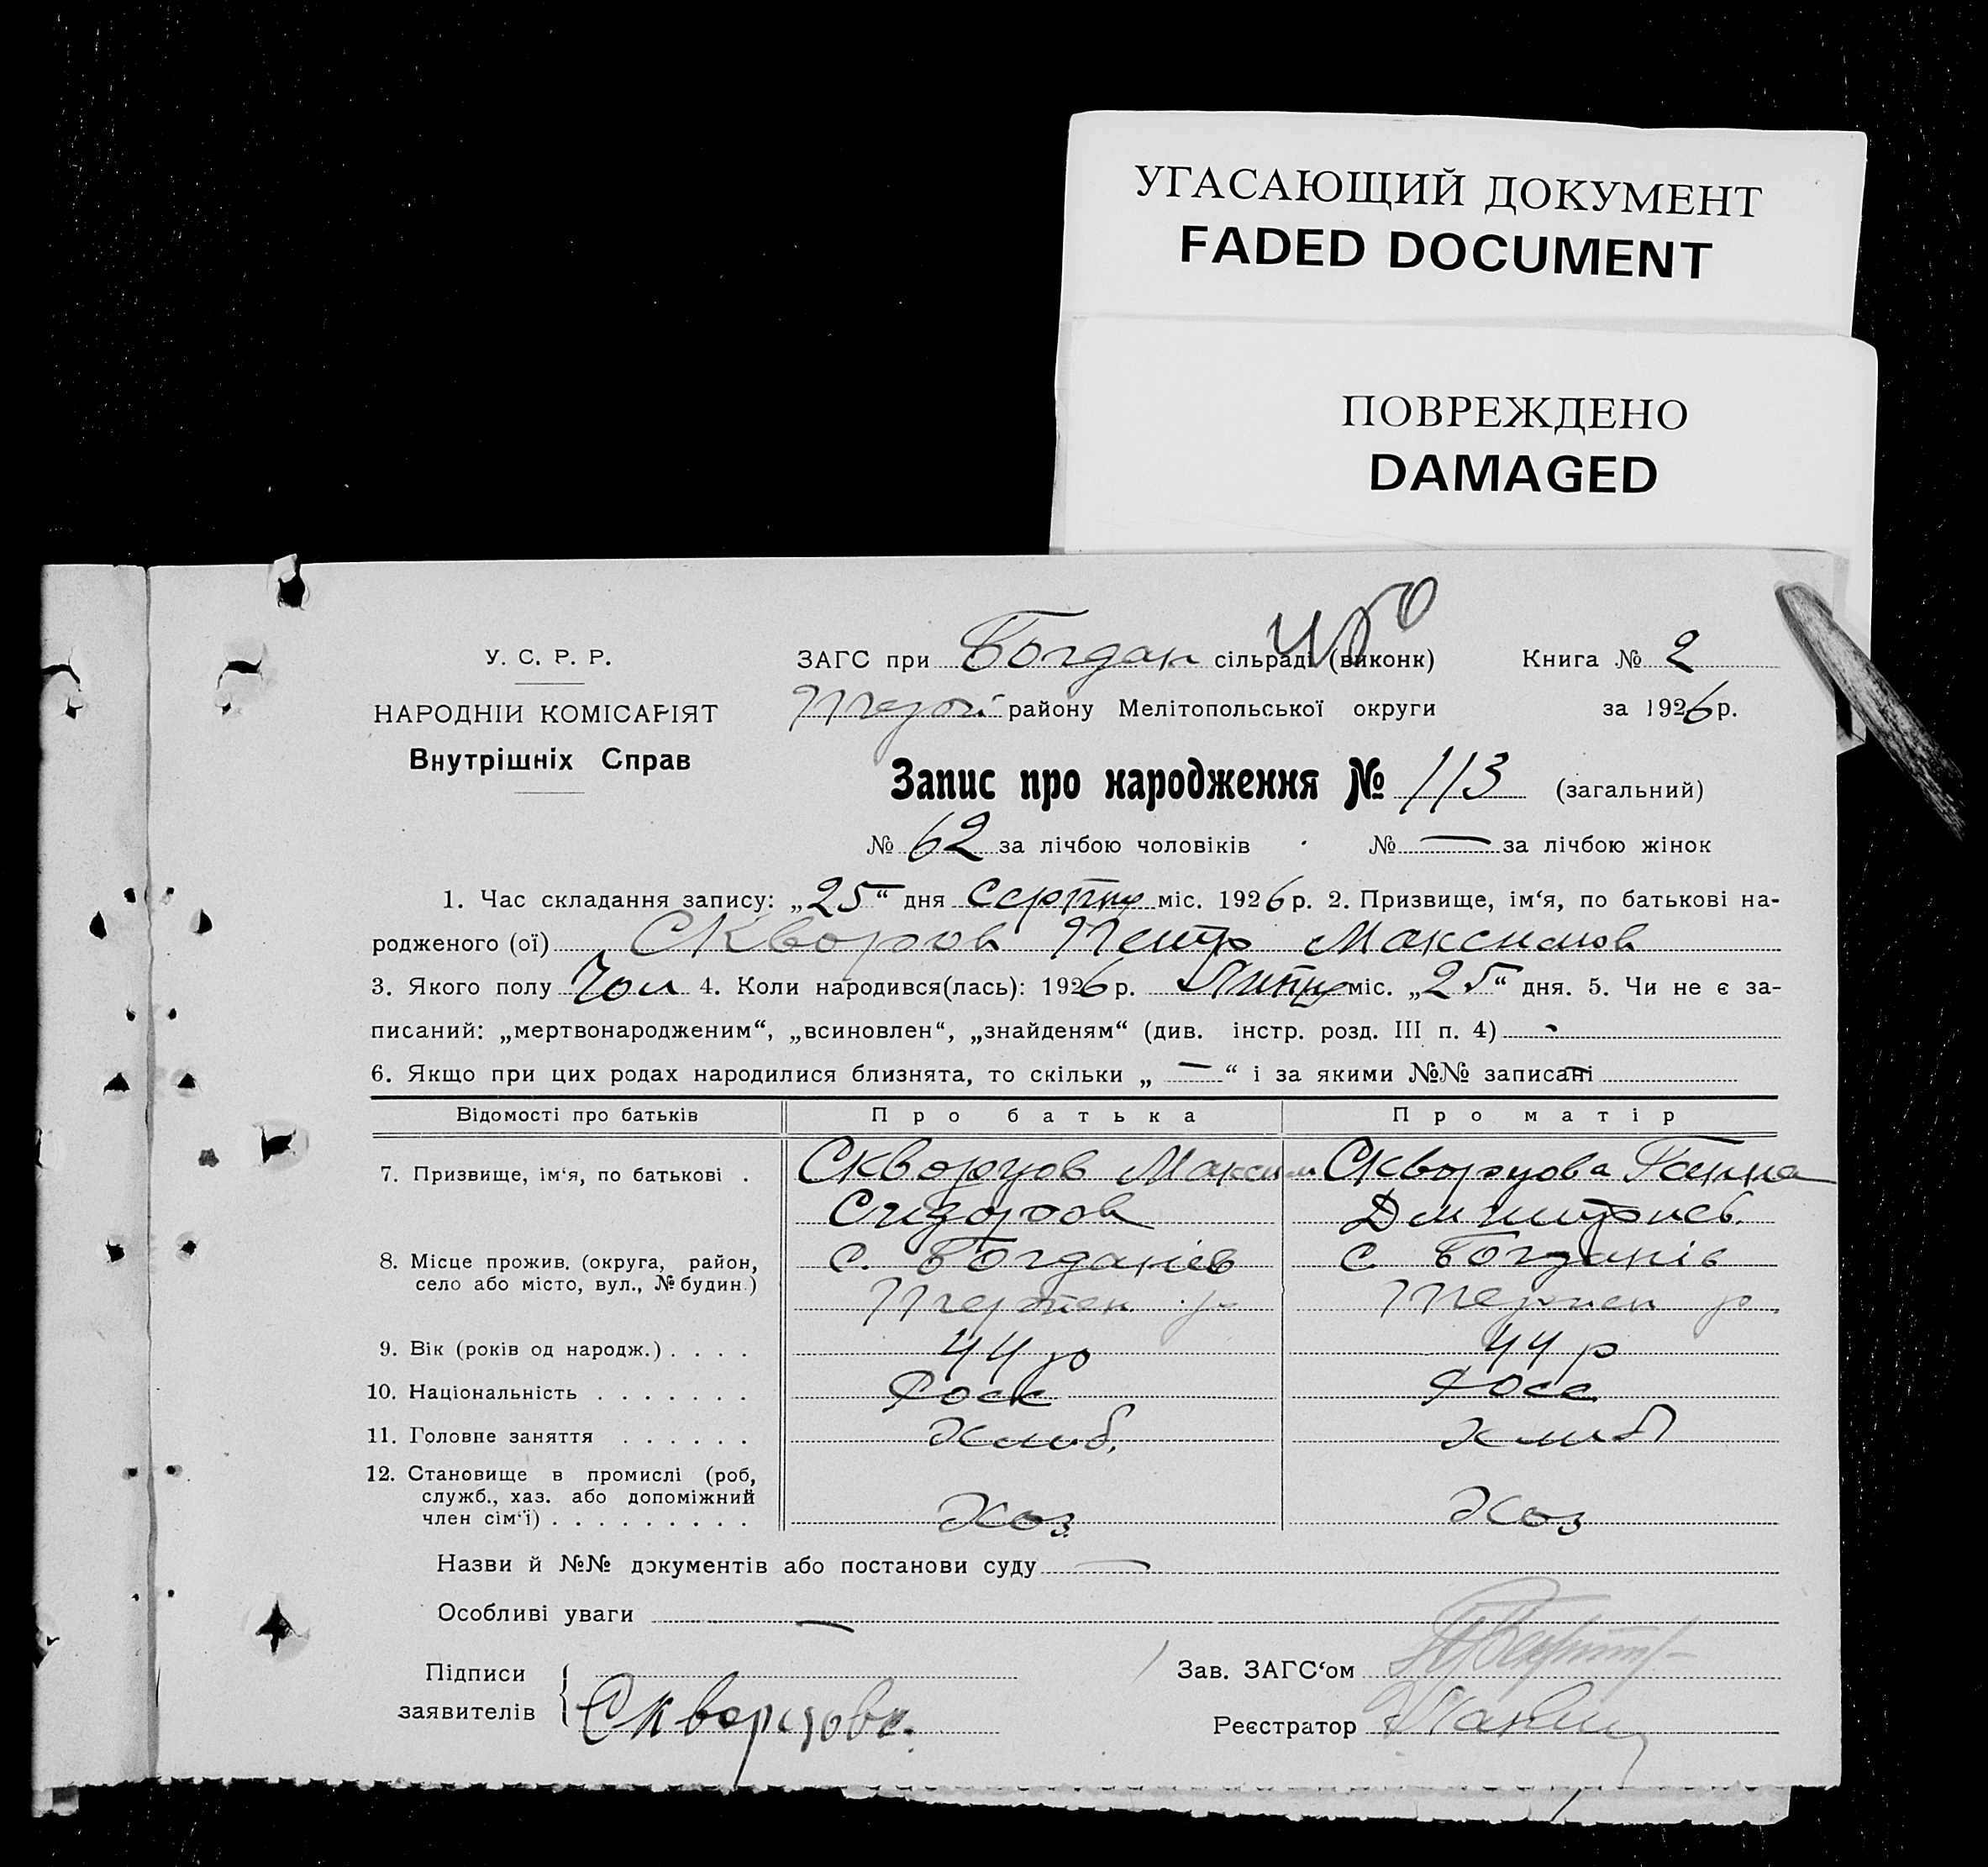 УГАСАЮЩИЙ ДОКУМЕНТ
FADED DOCUMENT
ПОВРЕЖДЕНО
DAMAGED
У. С. Р. Р.
НАРОДНІЙ КОМІСАРІЯТ
Внутрішніх Справ
ЗАГС при Богдан сільраді (виконк)
Книга № 2
району Мелітопольської округи
за 1926 р.
Запис про народження № 113 (загальний)
№ 62 за лічбою чоловіків № — за лічбою жінок
1. Час складання запису: „25“ дня Серпня міс. 1926 р. 2. Призвище, ім‘я, по батькові на-
родженого (ої) Петр Максимов
3. Якого полу Чол 4. Коли народився(лась): 1926 р. Липня міс. „25“ дня. 5. Чи не є за-
писаний: „мертвонародженим“, „всиновлен“, „знайденям“ (див. інстр. розд. III п. 4)
6. Якщо при цих родах народилися близнята, то скільки „ — “ і за якими №№ записані —
Відомості про батьків Про батька Про матір
7. Призвище, ім‘я, по батькові . Скворцов Максим Скворцова Ганна
Сизоров Дмитриев.
8. Місце прожив. (округа, район, с. Богданів с Богданів
село або місто, вул., № будин.) Терпен р. Терпен р.
9. Вік (років од народж.) . . . . 44 р 44 р
10. Національність . . . . . . . Росс Росс
11. Головне заняття . . . . . . Хлиб. Хлиб
12. Становище в промислі (роб,
служб., хаз. або допоміжний
член сім‘ї) . . . . . . . . . Хоз Хоз
Назви й №№ документів або постанови суду —
Особливі уваги —
Підписи
заявителів Скворцова.
Зав. ЗАГС‘ом
Реєстратор